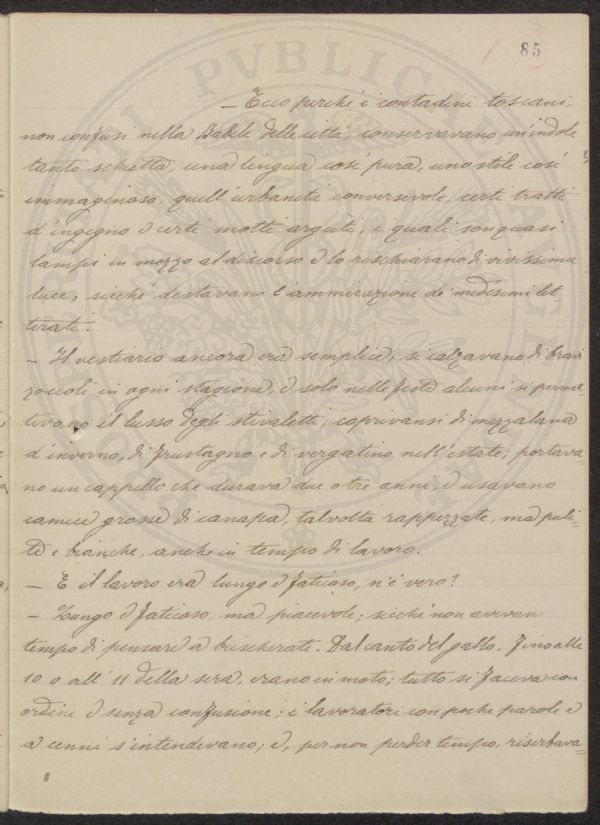 85
— Ecco perchè i contadini toscani,
non confusi nella Babele delle città, conservavano un'indole
tanto schietta, una lingua così pura, uno stile così
immaginoso, quell'urbanità conversevole, certi tratti
d'ingegno e certi motti arguti, i quali son quasi
lampi in mezzo al discorso e lo rischiarano di vivissima
luce, sicchè destavano l'ammirazione de' medesimi let
terati.
— Il vestiario ancora era semplice; si calzavano di bravi
zoccoli in ogni stagione, e solo nelle feste alcuni si permet=
tevano il lusso degli stivaletti; coprivansi di mezzalana
d'inverno, di frustagno e di vergatino nell'estate; portava=
no un cappello che durava due o tre anni, e usavano
camice grosse di canapa, talvolta rappezzate, ma puli=
te e bianche, anche in tempo di lavoro.
— E il lavoro era lungo e faticoso, n'è vero?
— Lungo e faticoso, ma piacevole; sicchè non avevan
tempo di pensare a buscherate. Dal canto del gallo, fino alle
10 o all' 11 della sera, erano in moto; tutto si faceva con
ordine e senza confusione; i lavoratori con poche parole e
a cenni s'intendevano; e, per non perder tempo, riserbava=